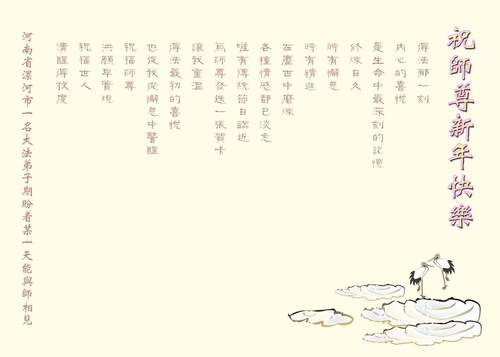 祝師尊新年快樂
得法那一刻
內心的喜悅
是生命中最深刻的記憶
修煉日久
時有懈怠
時有精進
在塵世中磨煉
各種情感都已淡忘
唯有傳統節日臨近
爲師尊發送一張賀卡
讓我重溫
得法最初的喜悅
也使我從懈怠中警醒
祝福師尊
洪願早實現
祝福世人
清醒得救度
河南省漯河市一名大法弟子期盼着某一天能與師相見